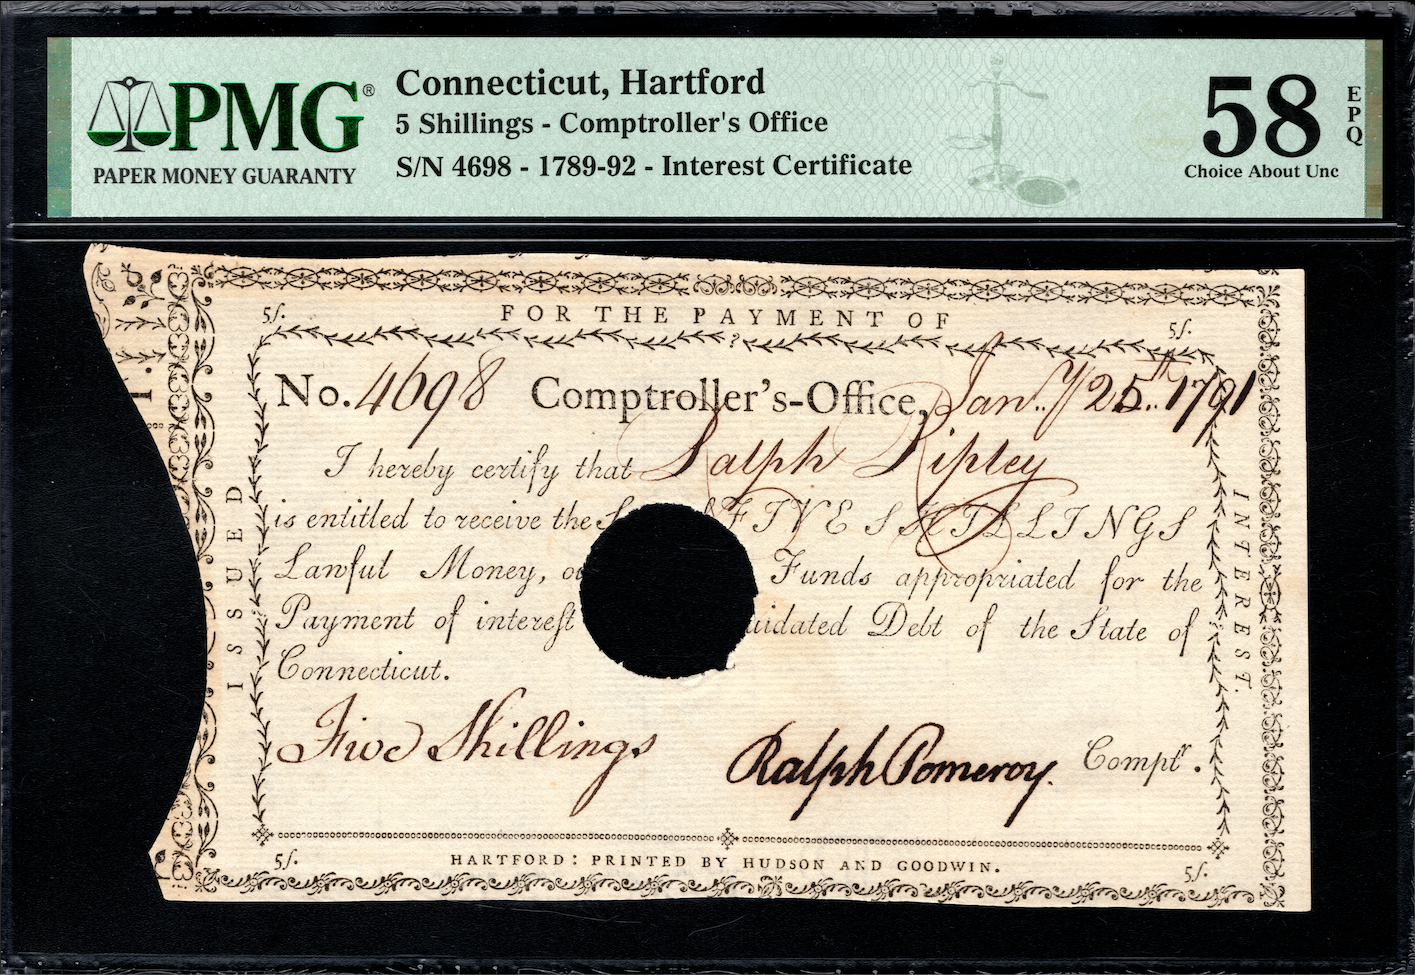 PMG®
PAPER MONEY GUARANTY
Connecticut, Hartford
5 Shillings - Comptroller's Office
S/N 4698 - 1789-92 - Interest Certificate
58 EPQ
Choice About Unc
5/. FOR THE PAYMENT OF 5/.
No. 4698 Comptroller's-Office, Jan.y 25th 1791
I hereby certify that Ralph Ripley
is entitled to receive the FIVE SHILLINGS
Lawful Money, Funds appropriated for the
Payment of interest uidated Debt of the State of
Connecticut.
Five Shillings Ralph Pomeroy. Comptr.
ISSUED
INTEREST.
5/. HARTFORD: PRINTED BY HUDSON AND GOODWIN. 5/.